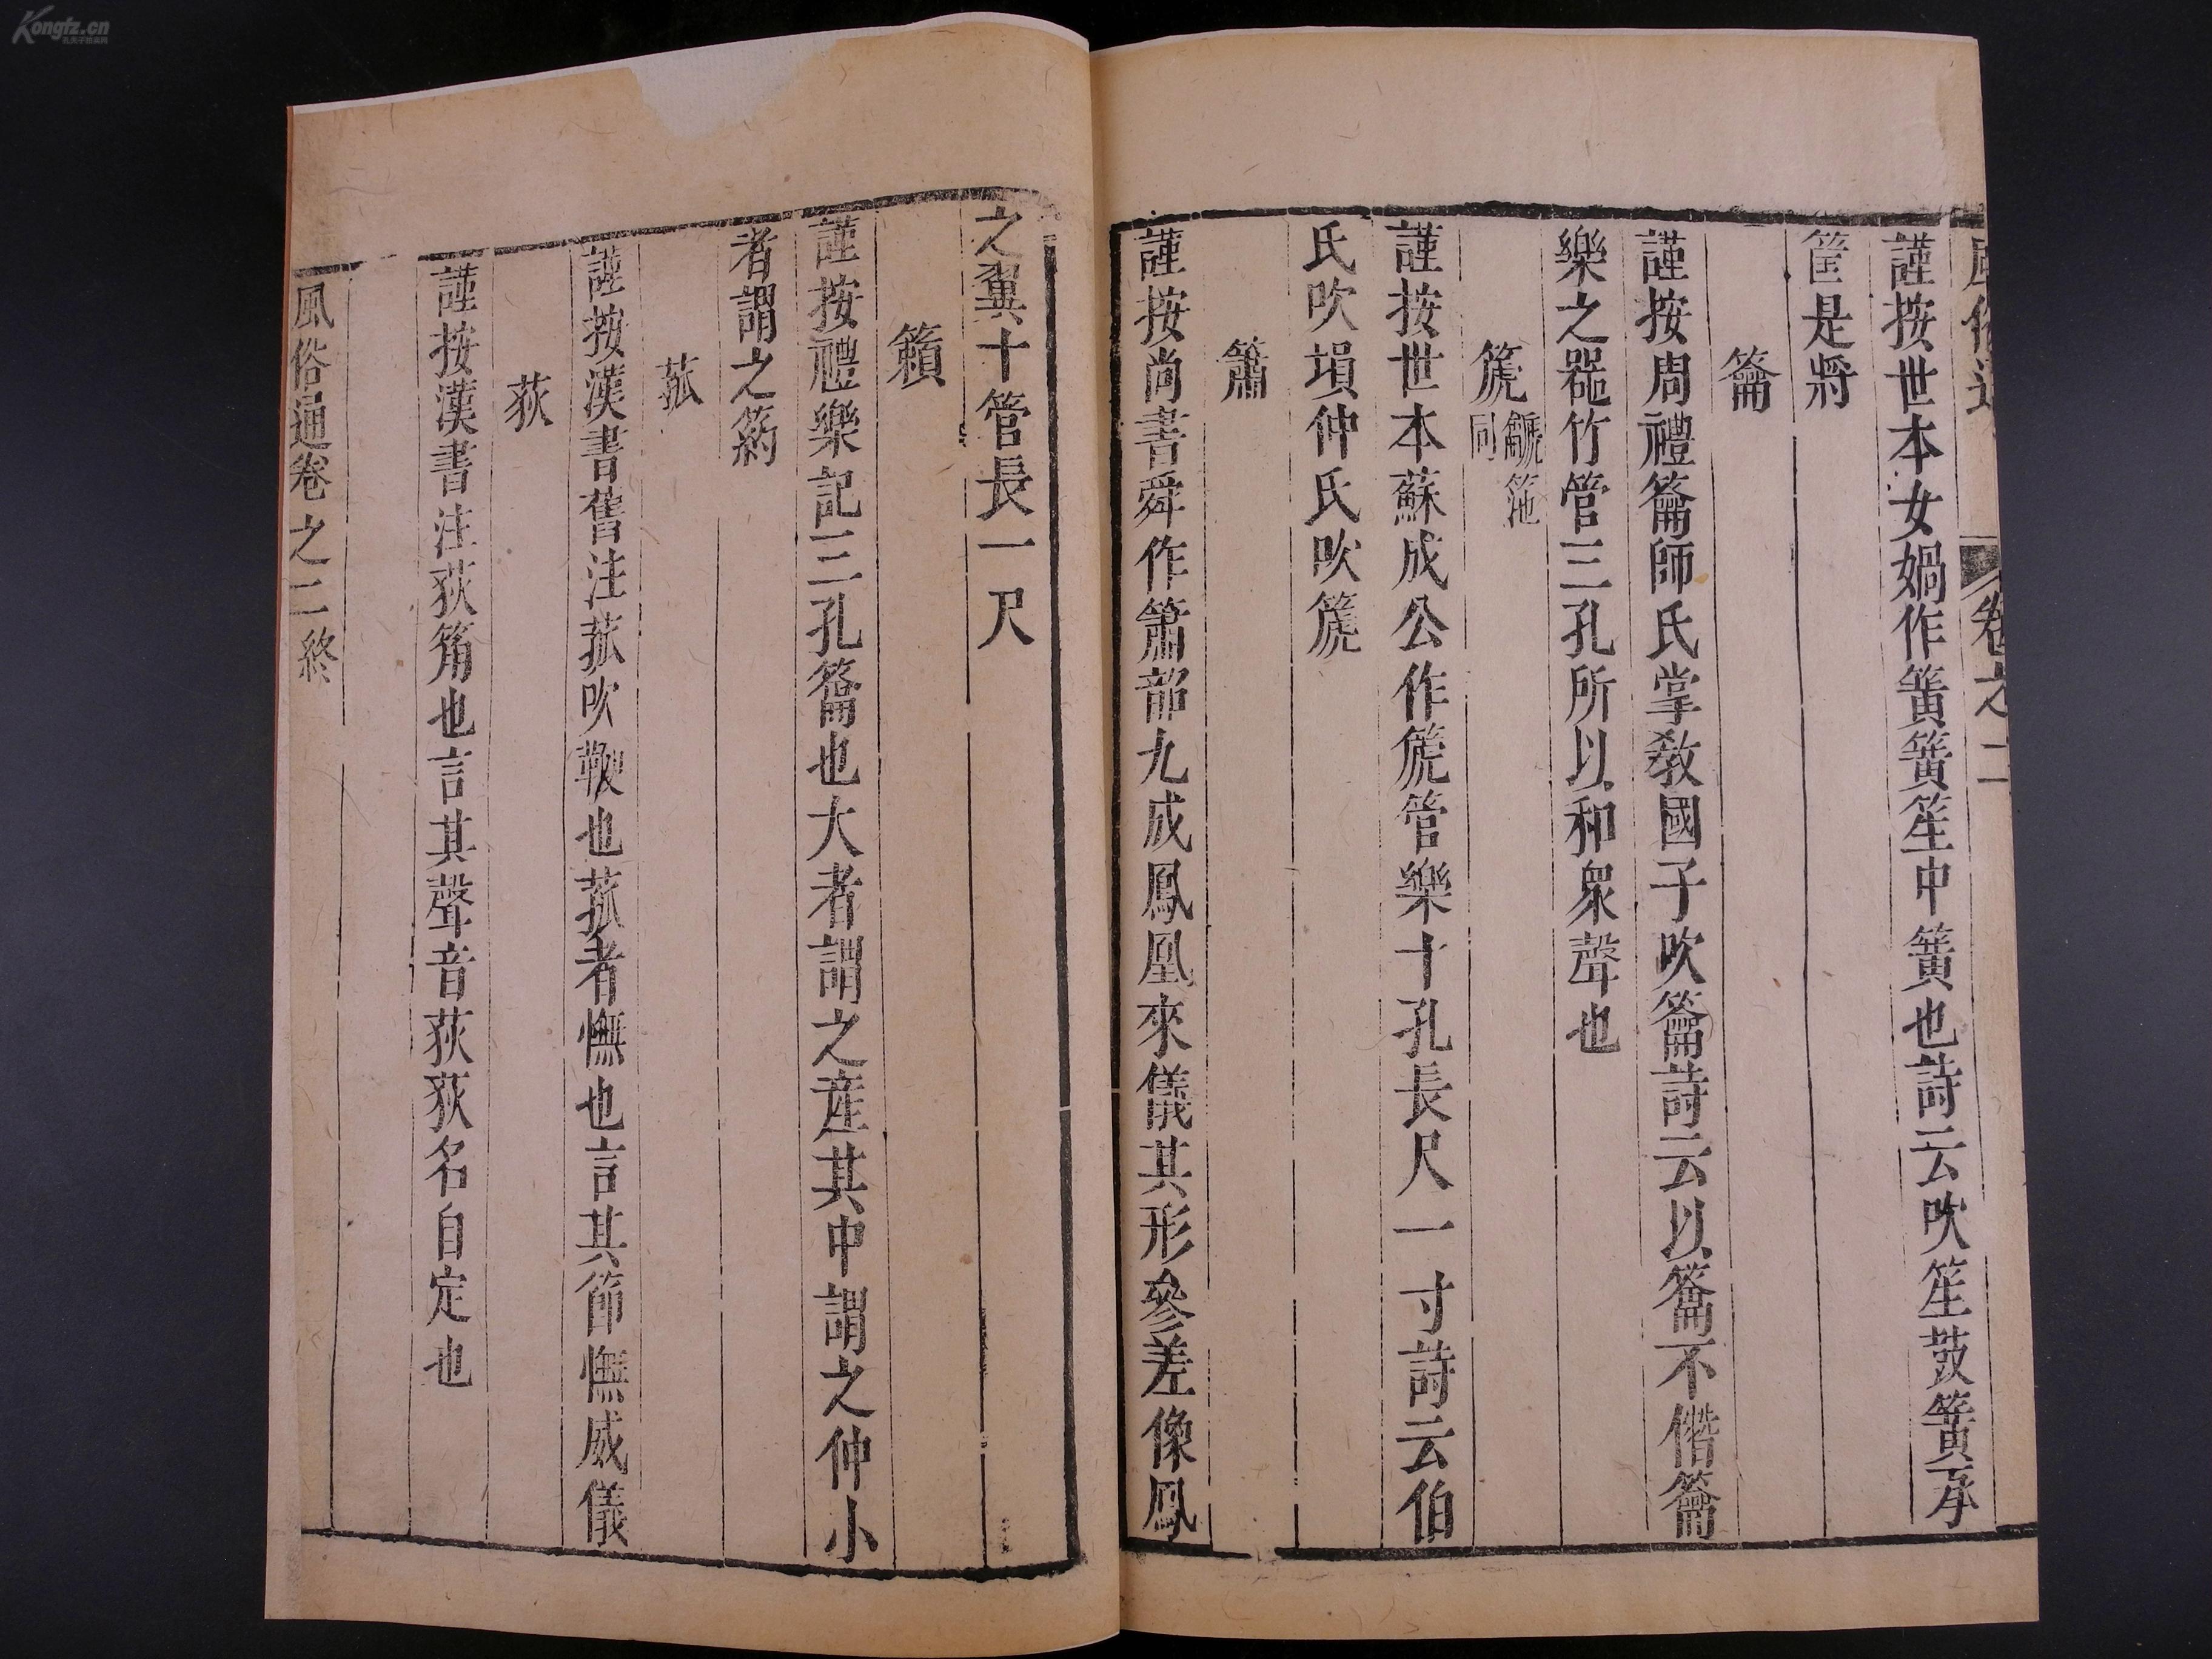 風俗通 卷之二
謹按世本女媧作簧簧笙中簧也詩云吹笙鼓簧承
筐是將
籥
謹按周禮籥師氏掌敎國子吹籥詩云以籥不僭籥
樂之器竹管三孔所以和衆聲也
篪 龥篪同
謹按世本蘇成公作篪管樂十孔長尺一寸詩云伯
氏吹塤仲氏吹篪
簫
謹按尚書舜作簫韶九成鳳凰來儀其形參差像鳳
之翼十管長一尺
籟
謹按禮樂記三孔籥也大者謂之產其中謂之仲小
者謂之箹
菰
謹按漢書舊注菰吹鞭也菰者憮也言其節憮威儀
荻
謹按漢書注荻筩也言其聲音荻荻名自定也
風俗通卷之二終
Kongfz.cn